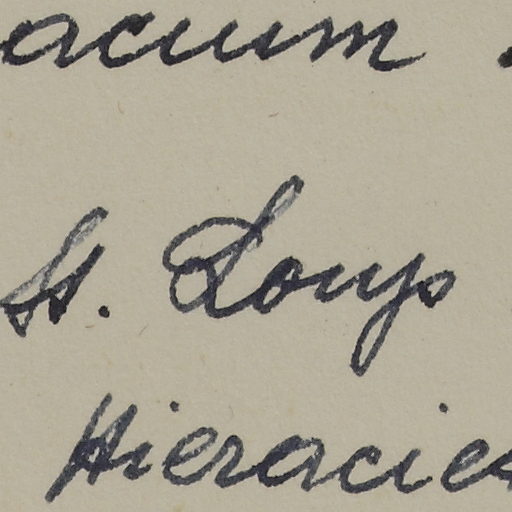 acium
St. Loup
Hieracie